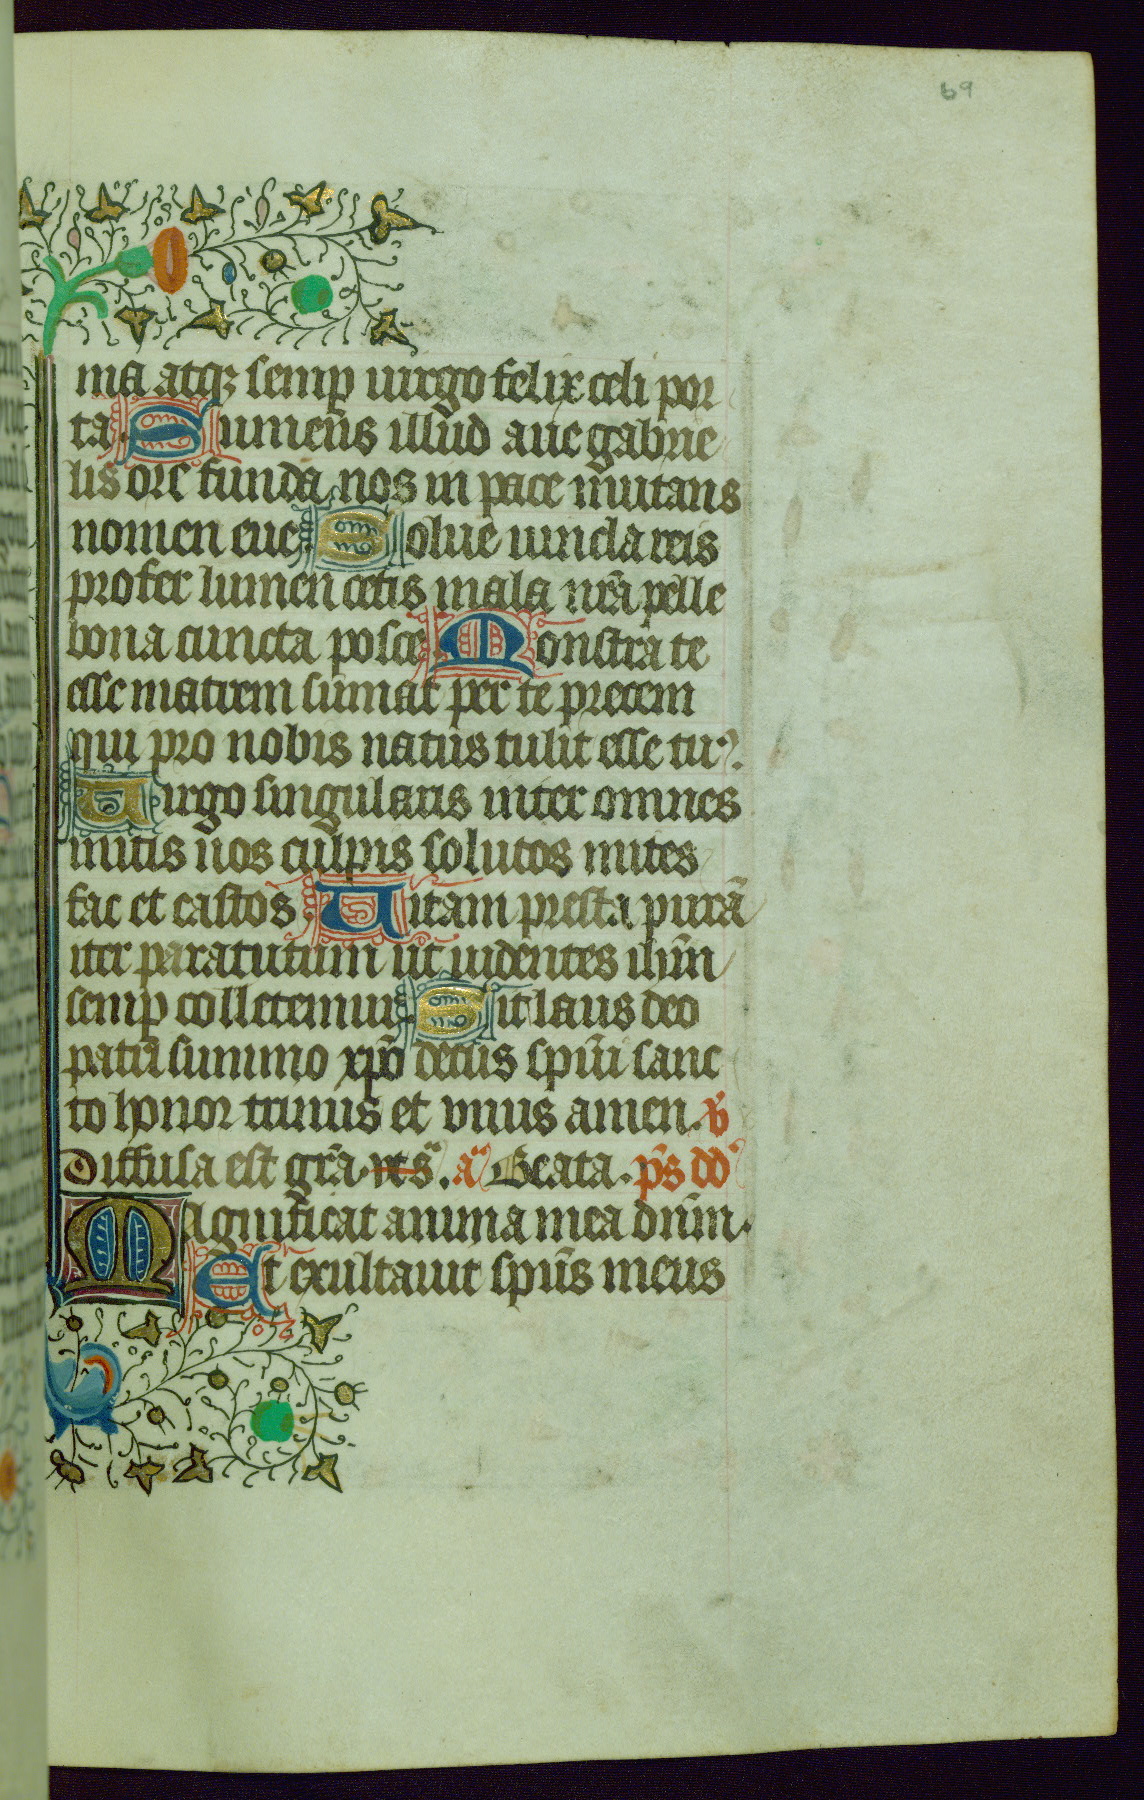 69
ma atqꝫ semp uirgo felix celi por
ta. Sumens illud aue gabrie
lis ore funda nos in pace mutans
nomen eue. Solue uincla reis
profer lumen cecis mala nr̄a pelle
bona cuncta posce. Monstra te
esse matrem sumat per te precem
qui pro nobis natus tulit esse tuꝰ.
Uirgo singularis inter omnes
mitis nos culpis solutos mites
fac et castos. Uitam presta purā
iter para tutum ut uidentes ihm̄
semp colletemur. Sit laus deo
patri summo xp̄o decus spūi sanc
to honor trinus et vnus amen. v̄
Diffusa est gr̄a. a Beata. ps dd
Magnificat anima mea dn̄m.
Et exultauit spūs meus